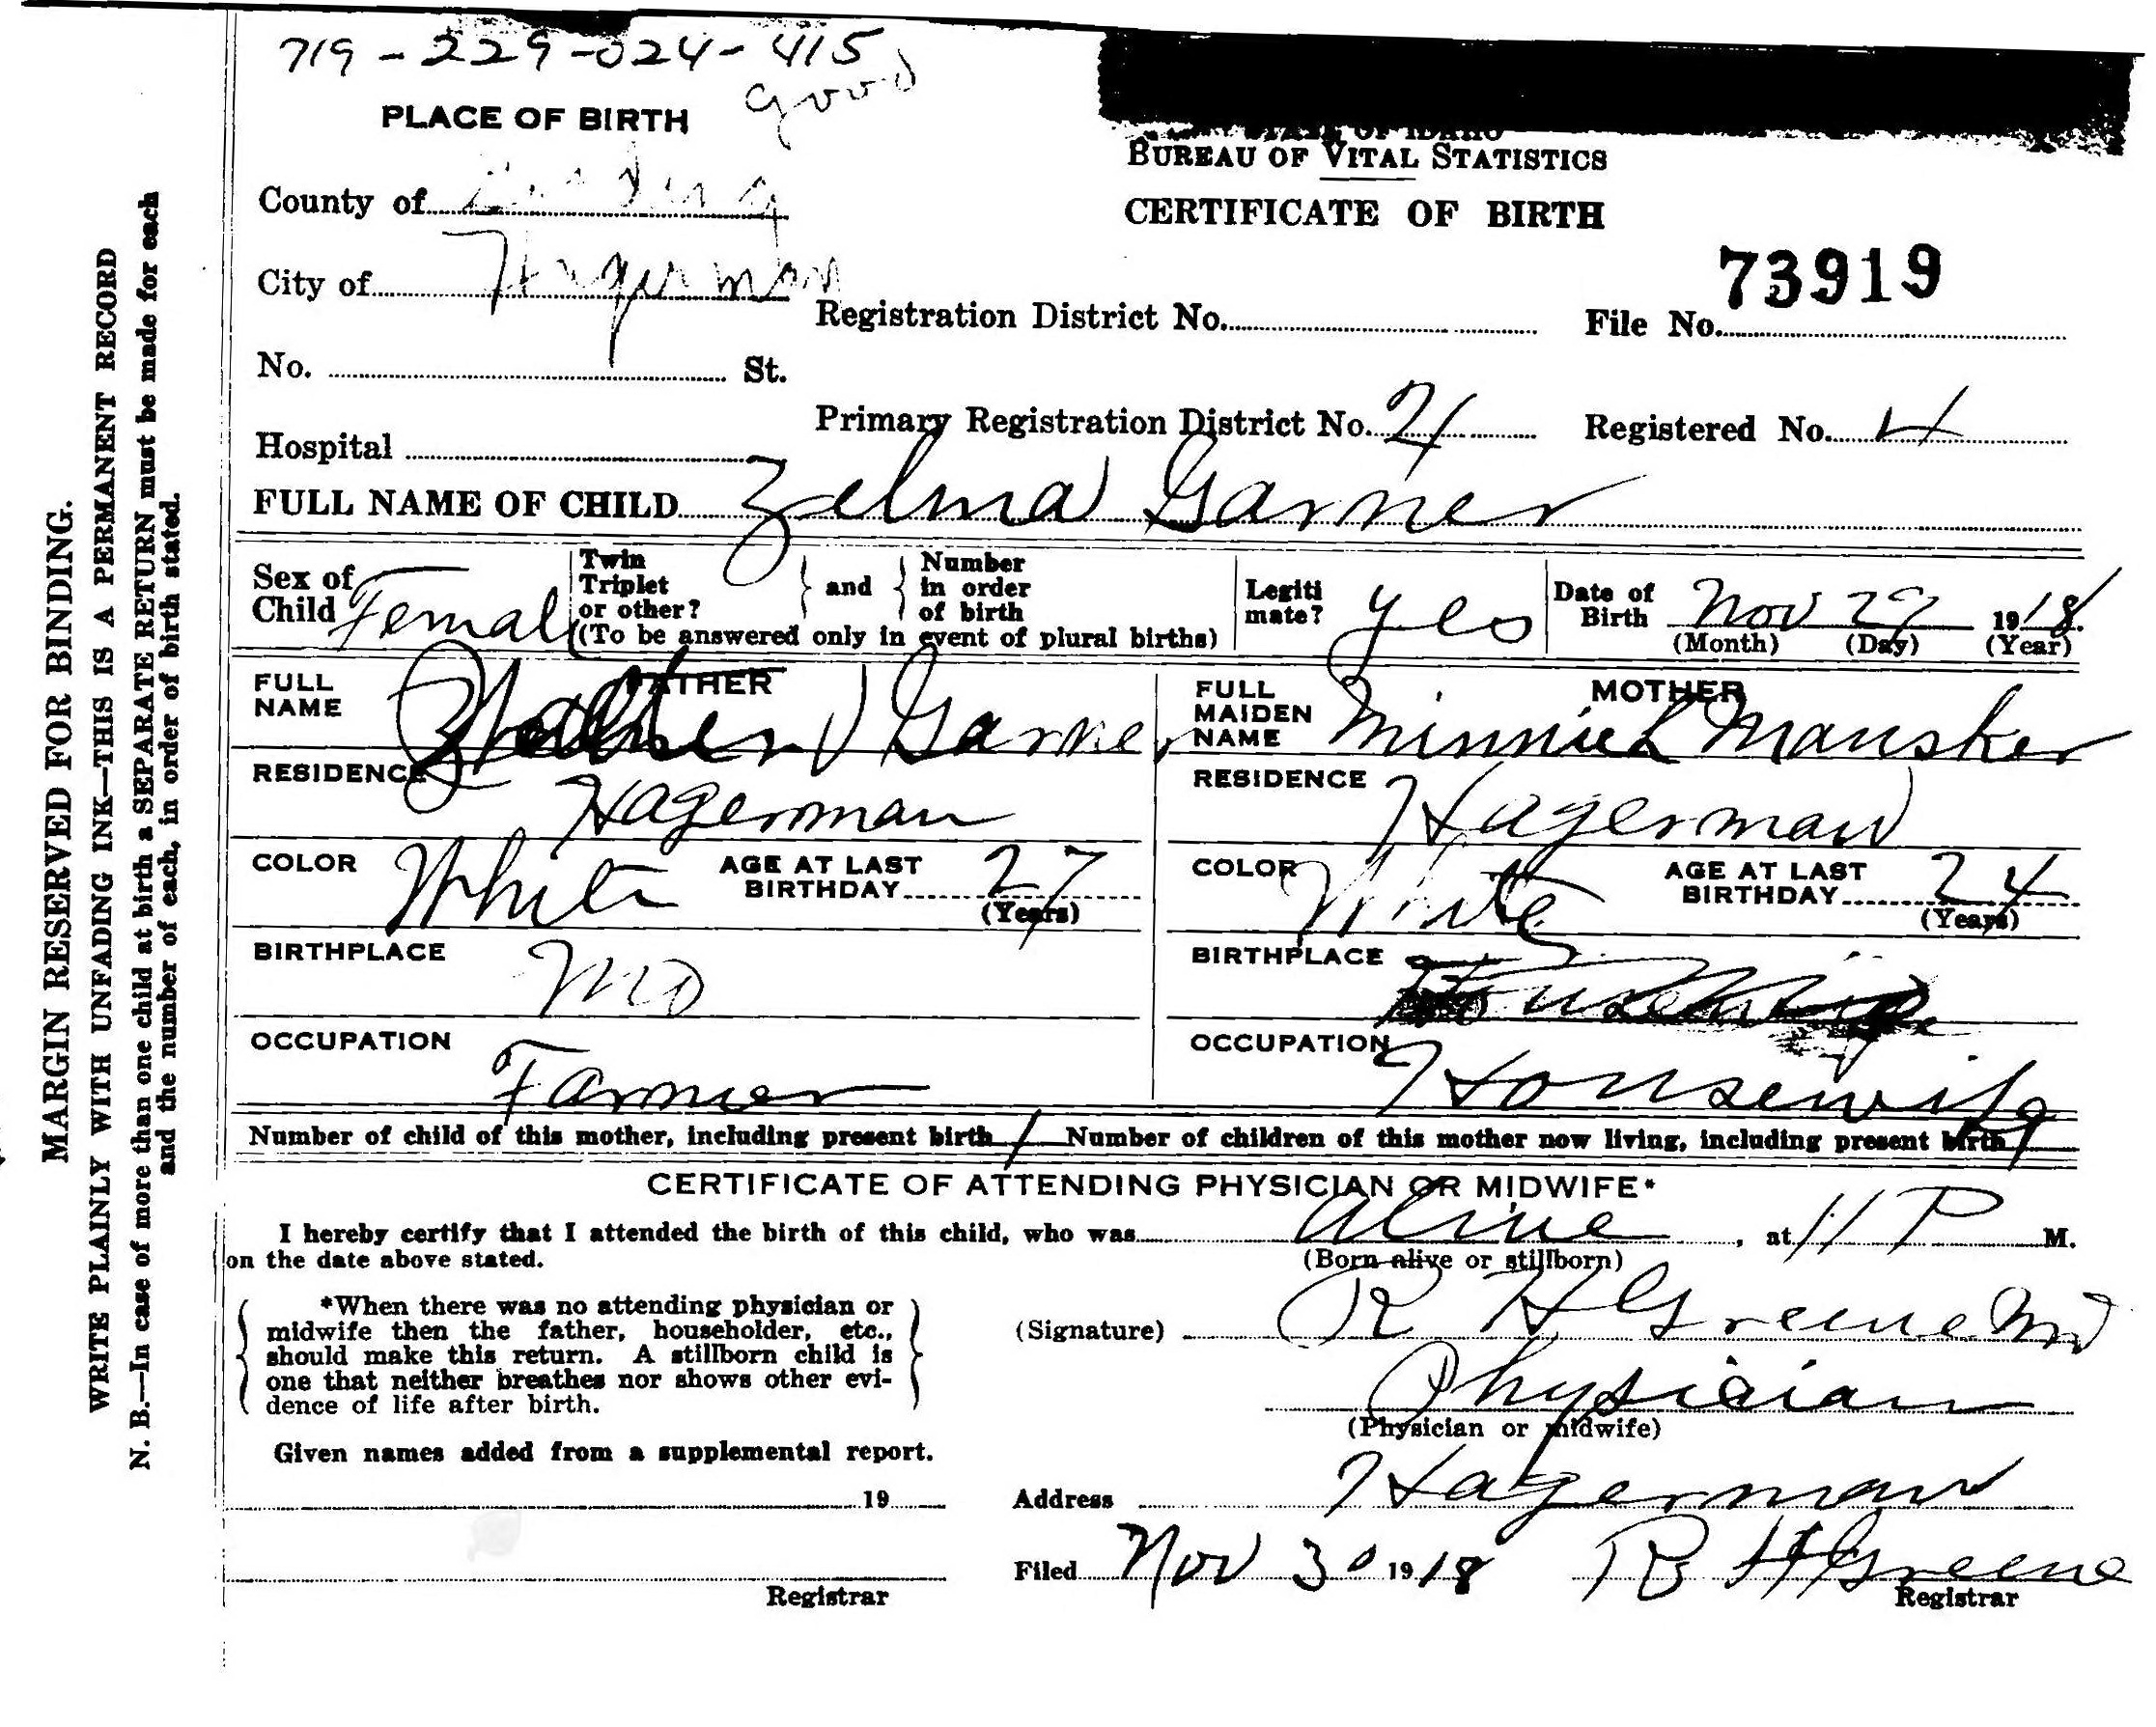 719-229-024-415
good
PLACE OF BIRTH
STATE OF IDAHO
BUREAU OF VITAL STATISTICS
CERTIFICATE OF BIRTH
County of
City of Hagerman
73919
Registration District No. File No.
No. St.
Primary Registration District No. 21 Registered No. 4
Hospital
FULL NAME OF CHILD Zelma Garner
Sex of Child Female
Twin Triplet or other? and Number in order of birth
(To be answered only in event of plural births)
Legiti mate? yes
Date of Birth Nov 29 1918.
(Month) (Day) (Year)
FATHER
FULL NAME Garner
MOTHER
FULL MAIDEN NAME Minnie Mansker
RESIDENCE Hagerman
RESIDENCE Hagerman
COLOR White AGE AT LAST BIRTHDAY 27 (Years)
COLOR White AGE AT LAST BIRTHDAY 24 (Years)
BIRTHPLACE Mo
BIRTHPLACE
OCCUPATION Farmer
OCCUPATION Housewife
Number of child of this mother, including present birth 1 Number of children of this mother now living, including present birth 1
CERTIFICATE OF ATTENDING PHYSICIAN OR MIDWIFE*
I hereby certify that I attended the birth of this child, who was alive, at 11 P M.
(Born alive or stillborn)
on the date above stated.
*When there was no attending physician or
midwife then the father, householder, etc.,
should make this return. A stillborn child is
one that neither breathes nor shows other evi-
dence of life after birth.
(Signature) R H Greene MD
Physician
(Physician or midwife)
Given names added from a supplemental report.
19
Address Hagerman
Filed Nov 30 1918 R H Greene
Registrar
Registrar
MARGIN RESERVED FOR BINDING.
WRITE PLAINLY WITH UNFADING INK—THIS IS A PERMANENT RECORD
N. B.—In case of more than one child at birth a SEPARATE RETURN must be made for each
and the number of each, in order of birth stated.